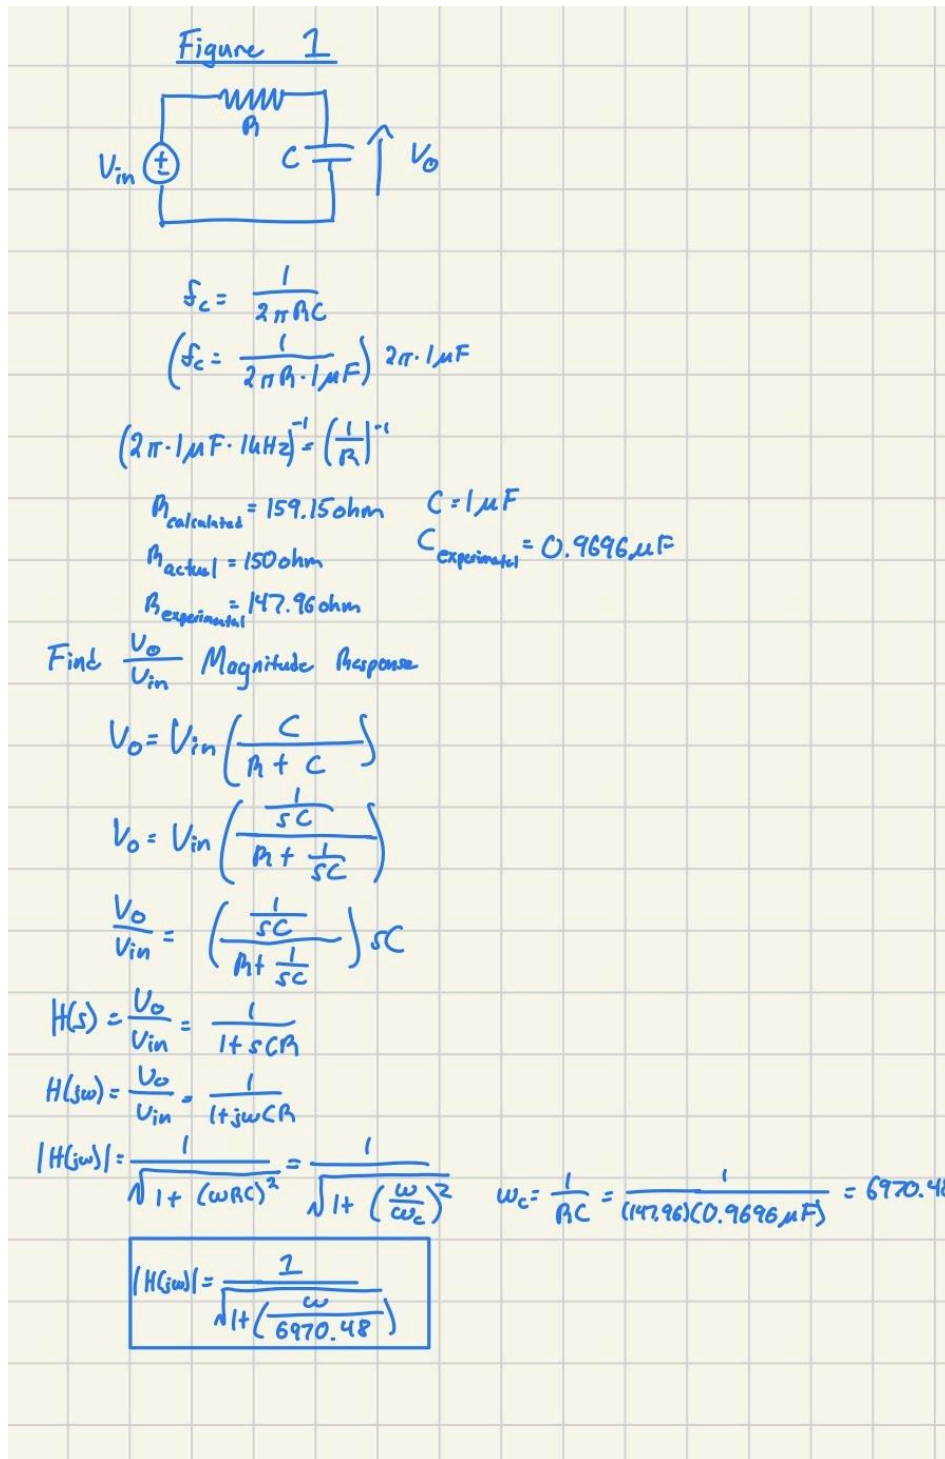 Figure 1
R
V_in
C
V_o
f_c = 1/(2πRC)
(f_c = 1/(2πR·1μF)) 2π·1μF
(2π·1μF·1kHz)^-1 = (1/R)^-1
R_calculated = 159.15ohm C = 1μF
R_actual = 150ohm C_experimental = 0.9696μF
R_experimental = 147.96ohm
Find V_o/V_in Magnitude Response
V_o = V_in (C/(R + C))
V_o = V_in ((1/sC)/(R + 1/sC))
V_o/V_in = ((1/sC)/(R + 1/sC)) sC
H(s) = V_o/V_in = 1/(1+sCR)
H(jω) = V_o/V_in = 1/(1+jωCR)
|H(jω)| = 1/√(1 + (ωRC)^2) = 1/√(1 + (ω/ω_c)^2) ω_c = 1/RC = 1/((147.96)(0.9696μF)) = 6970.48
|H(jω)| = 1/√(1+(ω/6970.48))